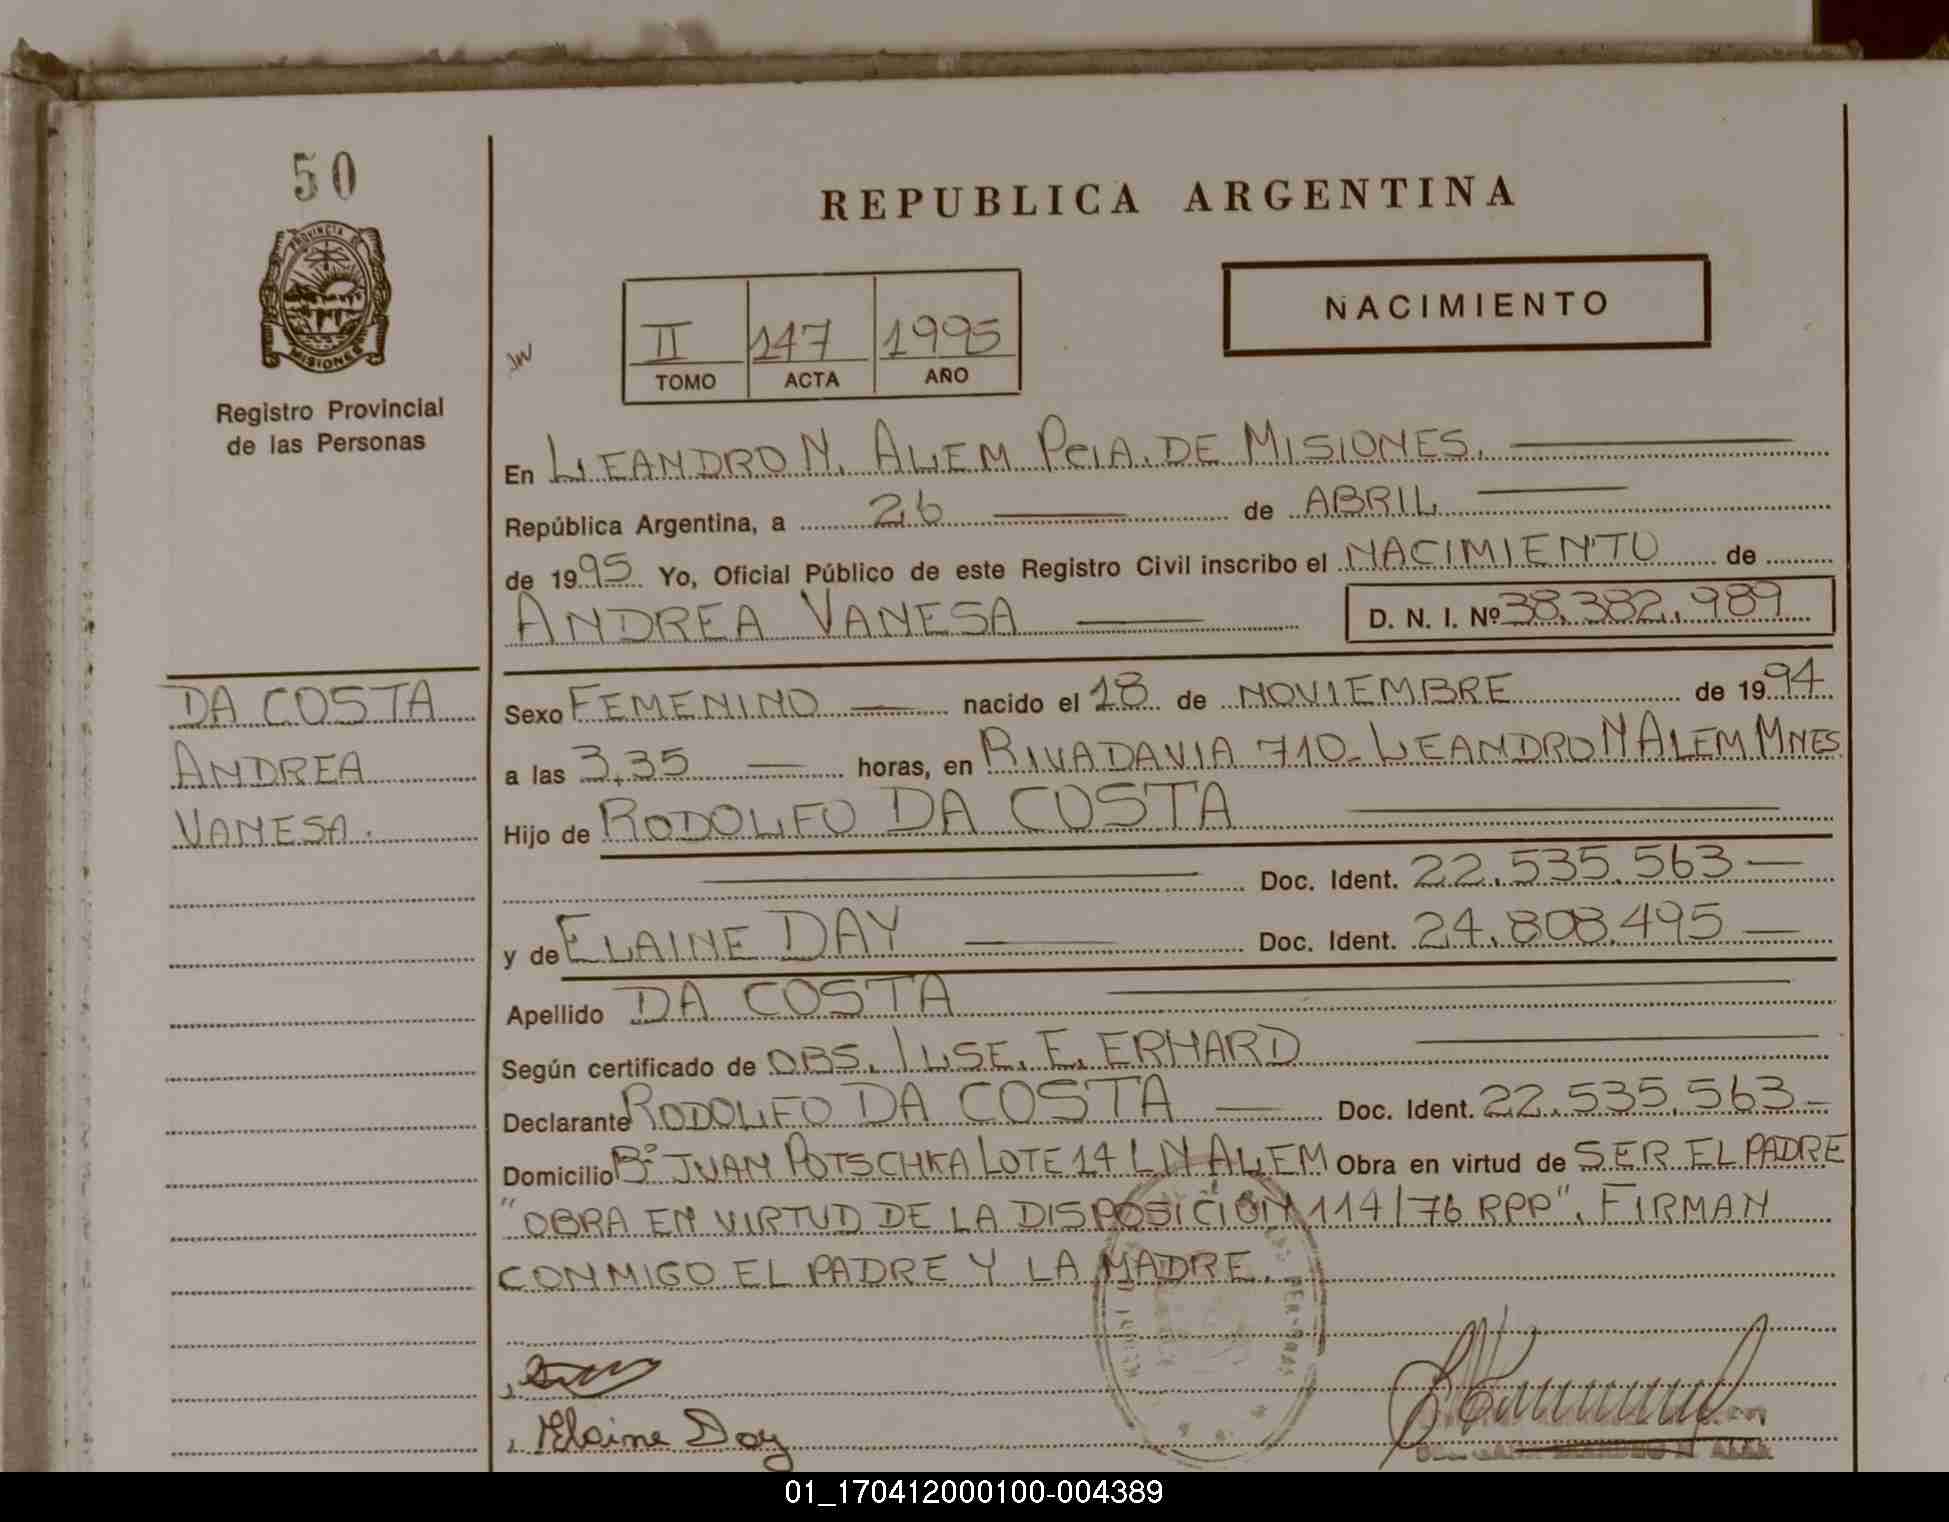 50
PROVINCIA DE
MISIONES
Registro Provincial
de las Personas
REPUBLICA ARGENTINA
NACIMIENTO
II 147 1995
TOMO ACTA AÑO
En LEANDRO N. ALEM PCIA. DE MISIONES.
República Argentina, a 26 de ABRIL
de 1995 Yo, Oficial Público de este Registro Civil inscribo el NACIMIENTO de
ANDREA VANESA D. N. I. Nº 38.382.989
DA COSTA
ANDREA
VANESA.
Sexo FEMENINO nacido el 18 de NOVIEMBRE de 1994
a las 3,35 horas, en RIVADAVIA 710- LEANDRO N ALEM MNES
Hijo de RODOLFO DA COSTA
Doc. Ident. 22.535.563
y de ELAINE DAY Doc. Ident. 24.808.495
Apellido DA COSTA
Según certificado de OBS. ILSE. E. ERHARD
Declarante RODOLFO DA COSTA Doc. Ident. 22.535.563
Domicilio Bº JUAN POTSCHKA LOTE 14 L N ALEM Obra en virtud de SER EL PADRE
"OBRA EN VIRTUD DE LA DISPOSICIÓN 114/76 RPP". FIRMAN
CONMIGO EL PADRE Y LA MADRE.
Elaine Day
01_170412000100-004389